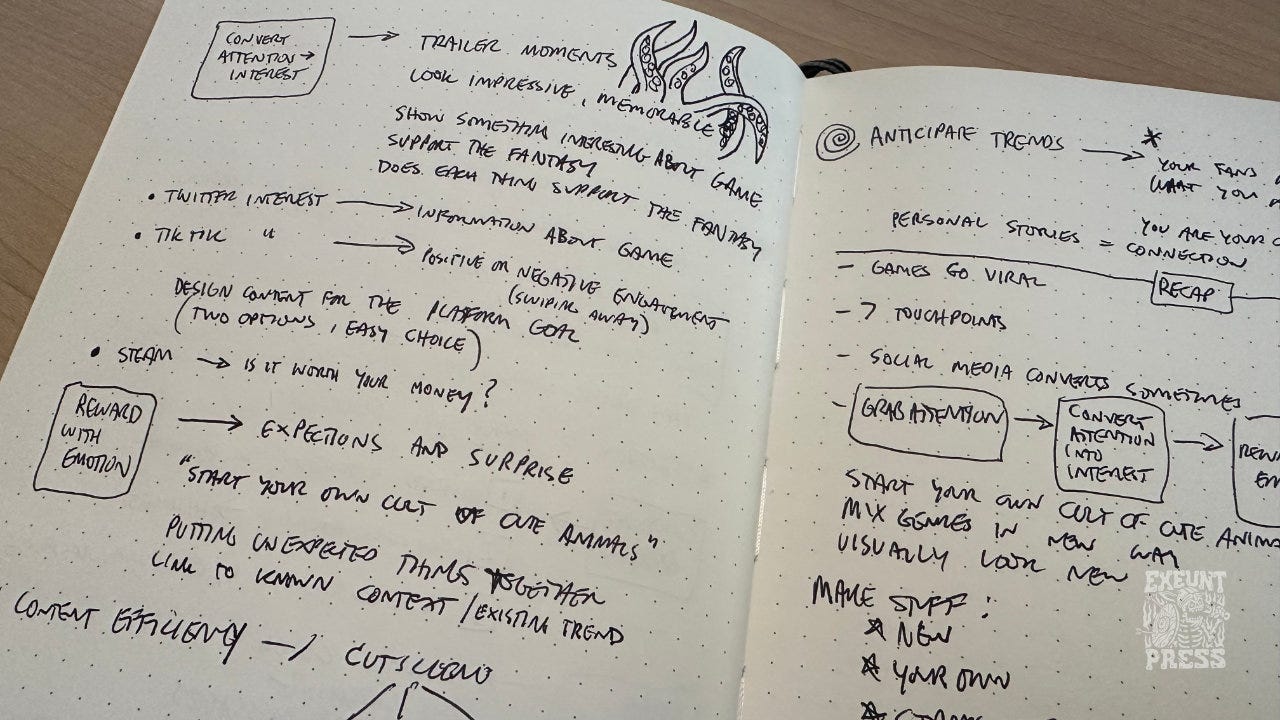 CONVERT
ATTENTION →
INTEREST
→ TRAILER MOMENTS
LOOK IMPRESSIVE, MEMORABLE
SHOW SOMETHING INTERESTING ABOUT GAME
SUPPORT THE FANTASY
DOES EACH THING SUPPORT THE FANTASY
• TWITTER INTEREST → INFORMATION ABOUT GAME
• TIKTOK " → POSITIVE OR NEGATIVE ENGATEMENT
(SWIPING AWAY)
DESIGN CONTENT FOR THE PLATFORM GOAL
(TWO OPTIONS, EASY CHOICE)
• STEAM → IS IT WORTH YOUR MONEY?
REWARD
WITH
EMOTION
→ EXPECTIONS AND SURPRISE
"START YOUR OWN CULT OF CUTE ANIMALS"
PUTTING UNEXPECTED THINGS TOGETHER
LINK TO KNOWN CONTEXT / EXISTING TREND
CONTENT EFFICIENCY →
ANTICIPATE TRENDS →
* YOUR FANS
WHAT YOU
PERSONAL STORIES =
YOU ARE YOUR
CONNECTION
- GAMES GO VIRAL
RECAP
- 7 TOUCHPOINTS
- SOCIAL MEDIA CONVERTS SOMETIMES
- GRAB ATTENTION →
CONVERT
ATTENTION
INTO
INTEREST
→
START YOUR OWN CULT OF CUTE ANIMA
MIX GENRES IN NEW WAY
VISUALLY LOOK NEW
MAKE STUFF:
* NEW
* YOUR OWN
EXEUNT
PRESS